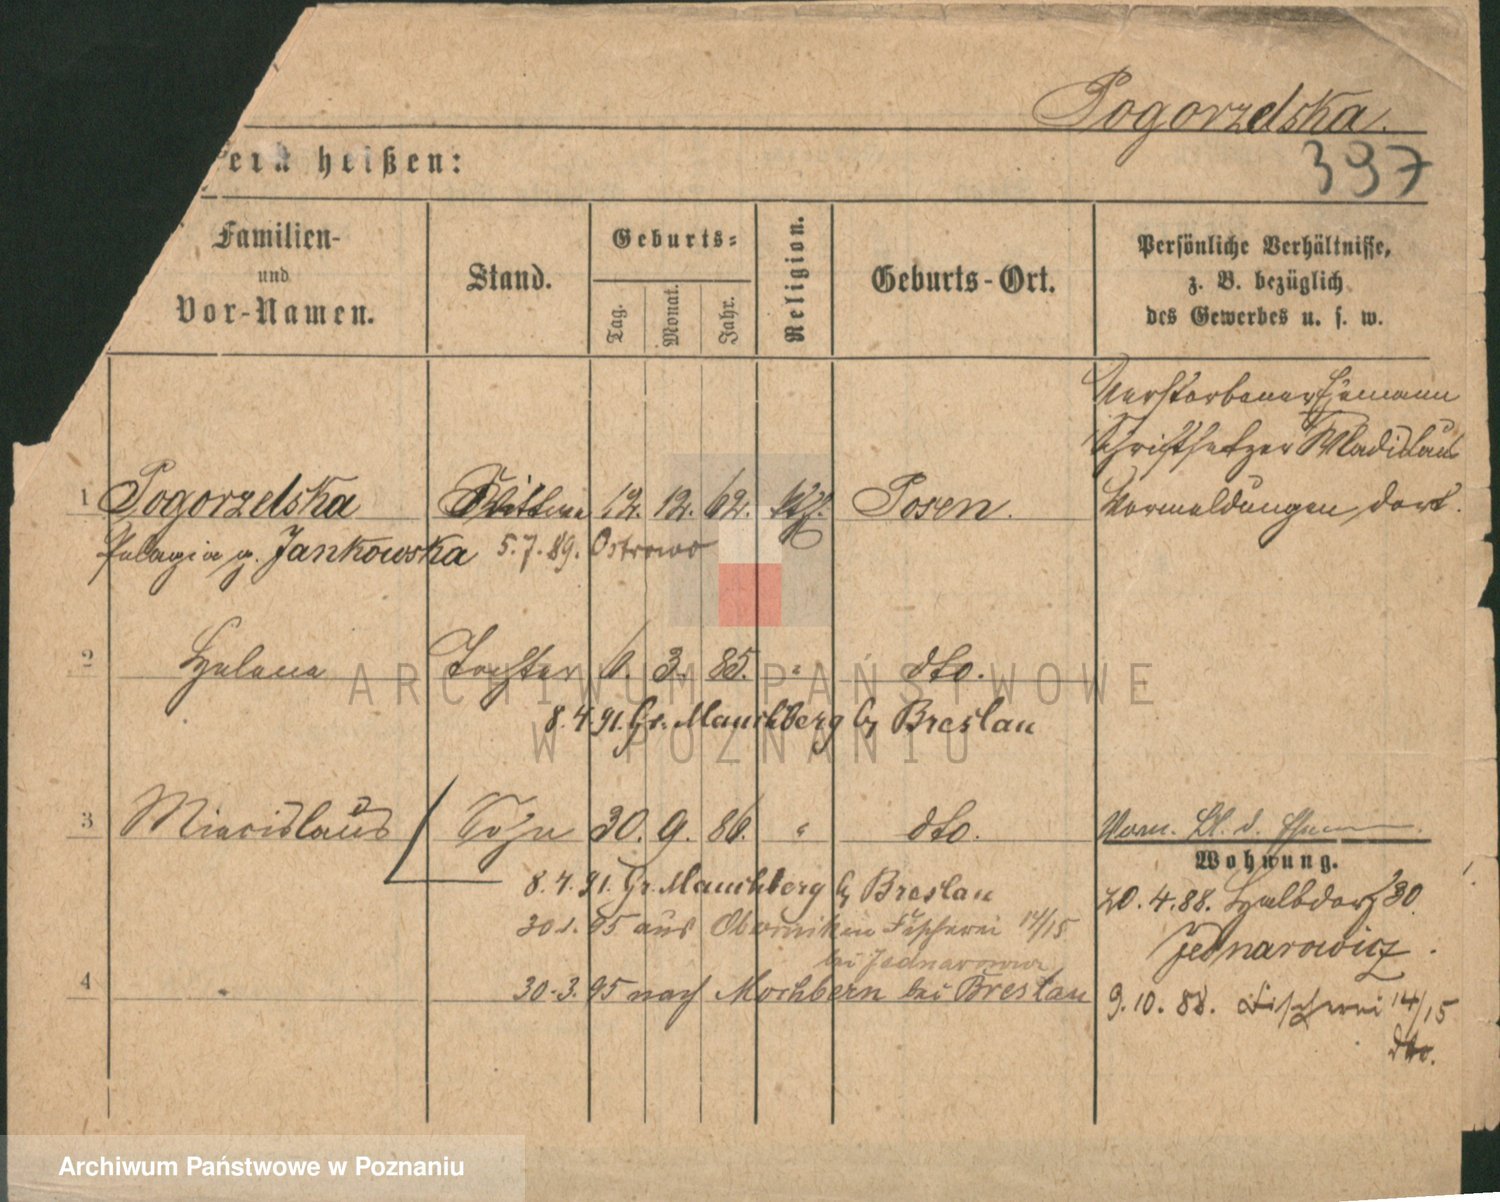 Pogorzelska.
397
heißen:
Familien-
und
Vor-Namen.
Stand.
Geburts-
Tag.
Monat.
Jahr.
Religion.
Geburts-Ort.
Persönliche Verhältnisse,
z. B. bezüglich
des Gewerbes u. s. w.
Verstorbener Ehemann
Schriftsetzer Wladislaus
Vormeldungen dort.
1 Pogorzelska Wittwe 12. 12. 62. kth. Posen.
Pelagia g. Jankowska 5.7.89. Ostrowo
2 Helena Tochter 6. 3. 85. " dto.
8.4.91. Gr. Mauchberg b/ Breslau
3 Miecislaus Sohn 30. 9. 86. " dto.
Vorm. Bl. d.
8.4.91. Gr. Mauchberg b/ Breslau
30.1.95 aus Obornik in Fischerei 14/15
bei Jednarowicz
4 30.3.95 nach Mochbern bei Breslau
Wohnung.
20.4.88. Halbdorf 30
Jednarowicz.
9.10.88. Fischerei 14/15
dto.
ARCHIWUM PAŃSTWOWE
W POZNANIU
Archiwum Państwowe w Poznaniu